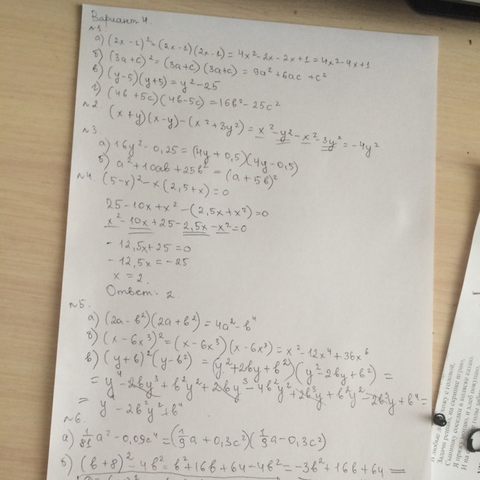 Вариант 4
№1
а) (2x-1)²=(2x-1)(2x-1)=4x²-2x-2x+1=4x²-4x+1
б) (3a+c)²=(3a+c)(3a+c)=9a²+6ac+c²
в) (y-5)(y+5)=y²-25
г) (4b+5c)(4b-5c)=16b²-25c²
№2. (x+y)(x-y)-(x²+3y²)=x²-y²-x²-3y²=-4y²
№3
а) 16y²-0,25=(4y+0,5)(4y-0,5)
б) a²+10ab+25b²=(a+5b)²
№4. (5-x)²-x(2,5+x)=0
25-10x+x²-(2,5x+x²)=0
x²-10x+25-2,5x-x²=0
-12,5x+25=0
-12,5x=-25
x=2.
Ответ: 2
№5.
а) (2a-b²)(2a+b²)=4a²-b⁴
б) (x-6x³)²=(x-6x³)(x-6x³)=x²-12x⁴+36x⁶
в) (y+b)²(y-b)²=(y²+2by+b²)(y²-2by+b²)=
=y⁴-2by³+b²y²+2by³-4b²y²+2b³y+b²y²-2b³y+b⁴=
=y⁴-2b²y²+b⁴
№6.
а) 1/81a²-0,09c⁴=(1/9a+0,3c²)(1/9a-0,3c²)
б) (b+8)²-4b²=b²+16b+64-4b²=-3b²+16b+64=